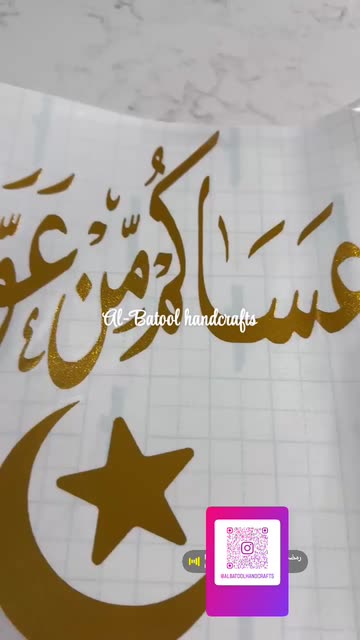 عَسَاكُم مِّنْ
Al-Batool handcrafts
@ALBATOOLHANDCRAFTS